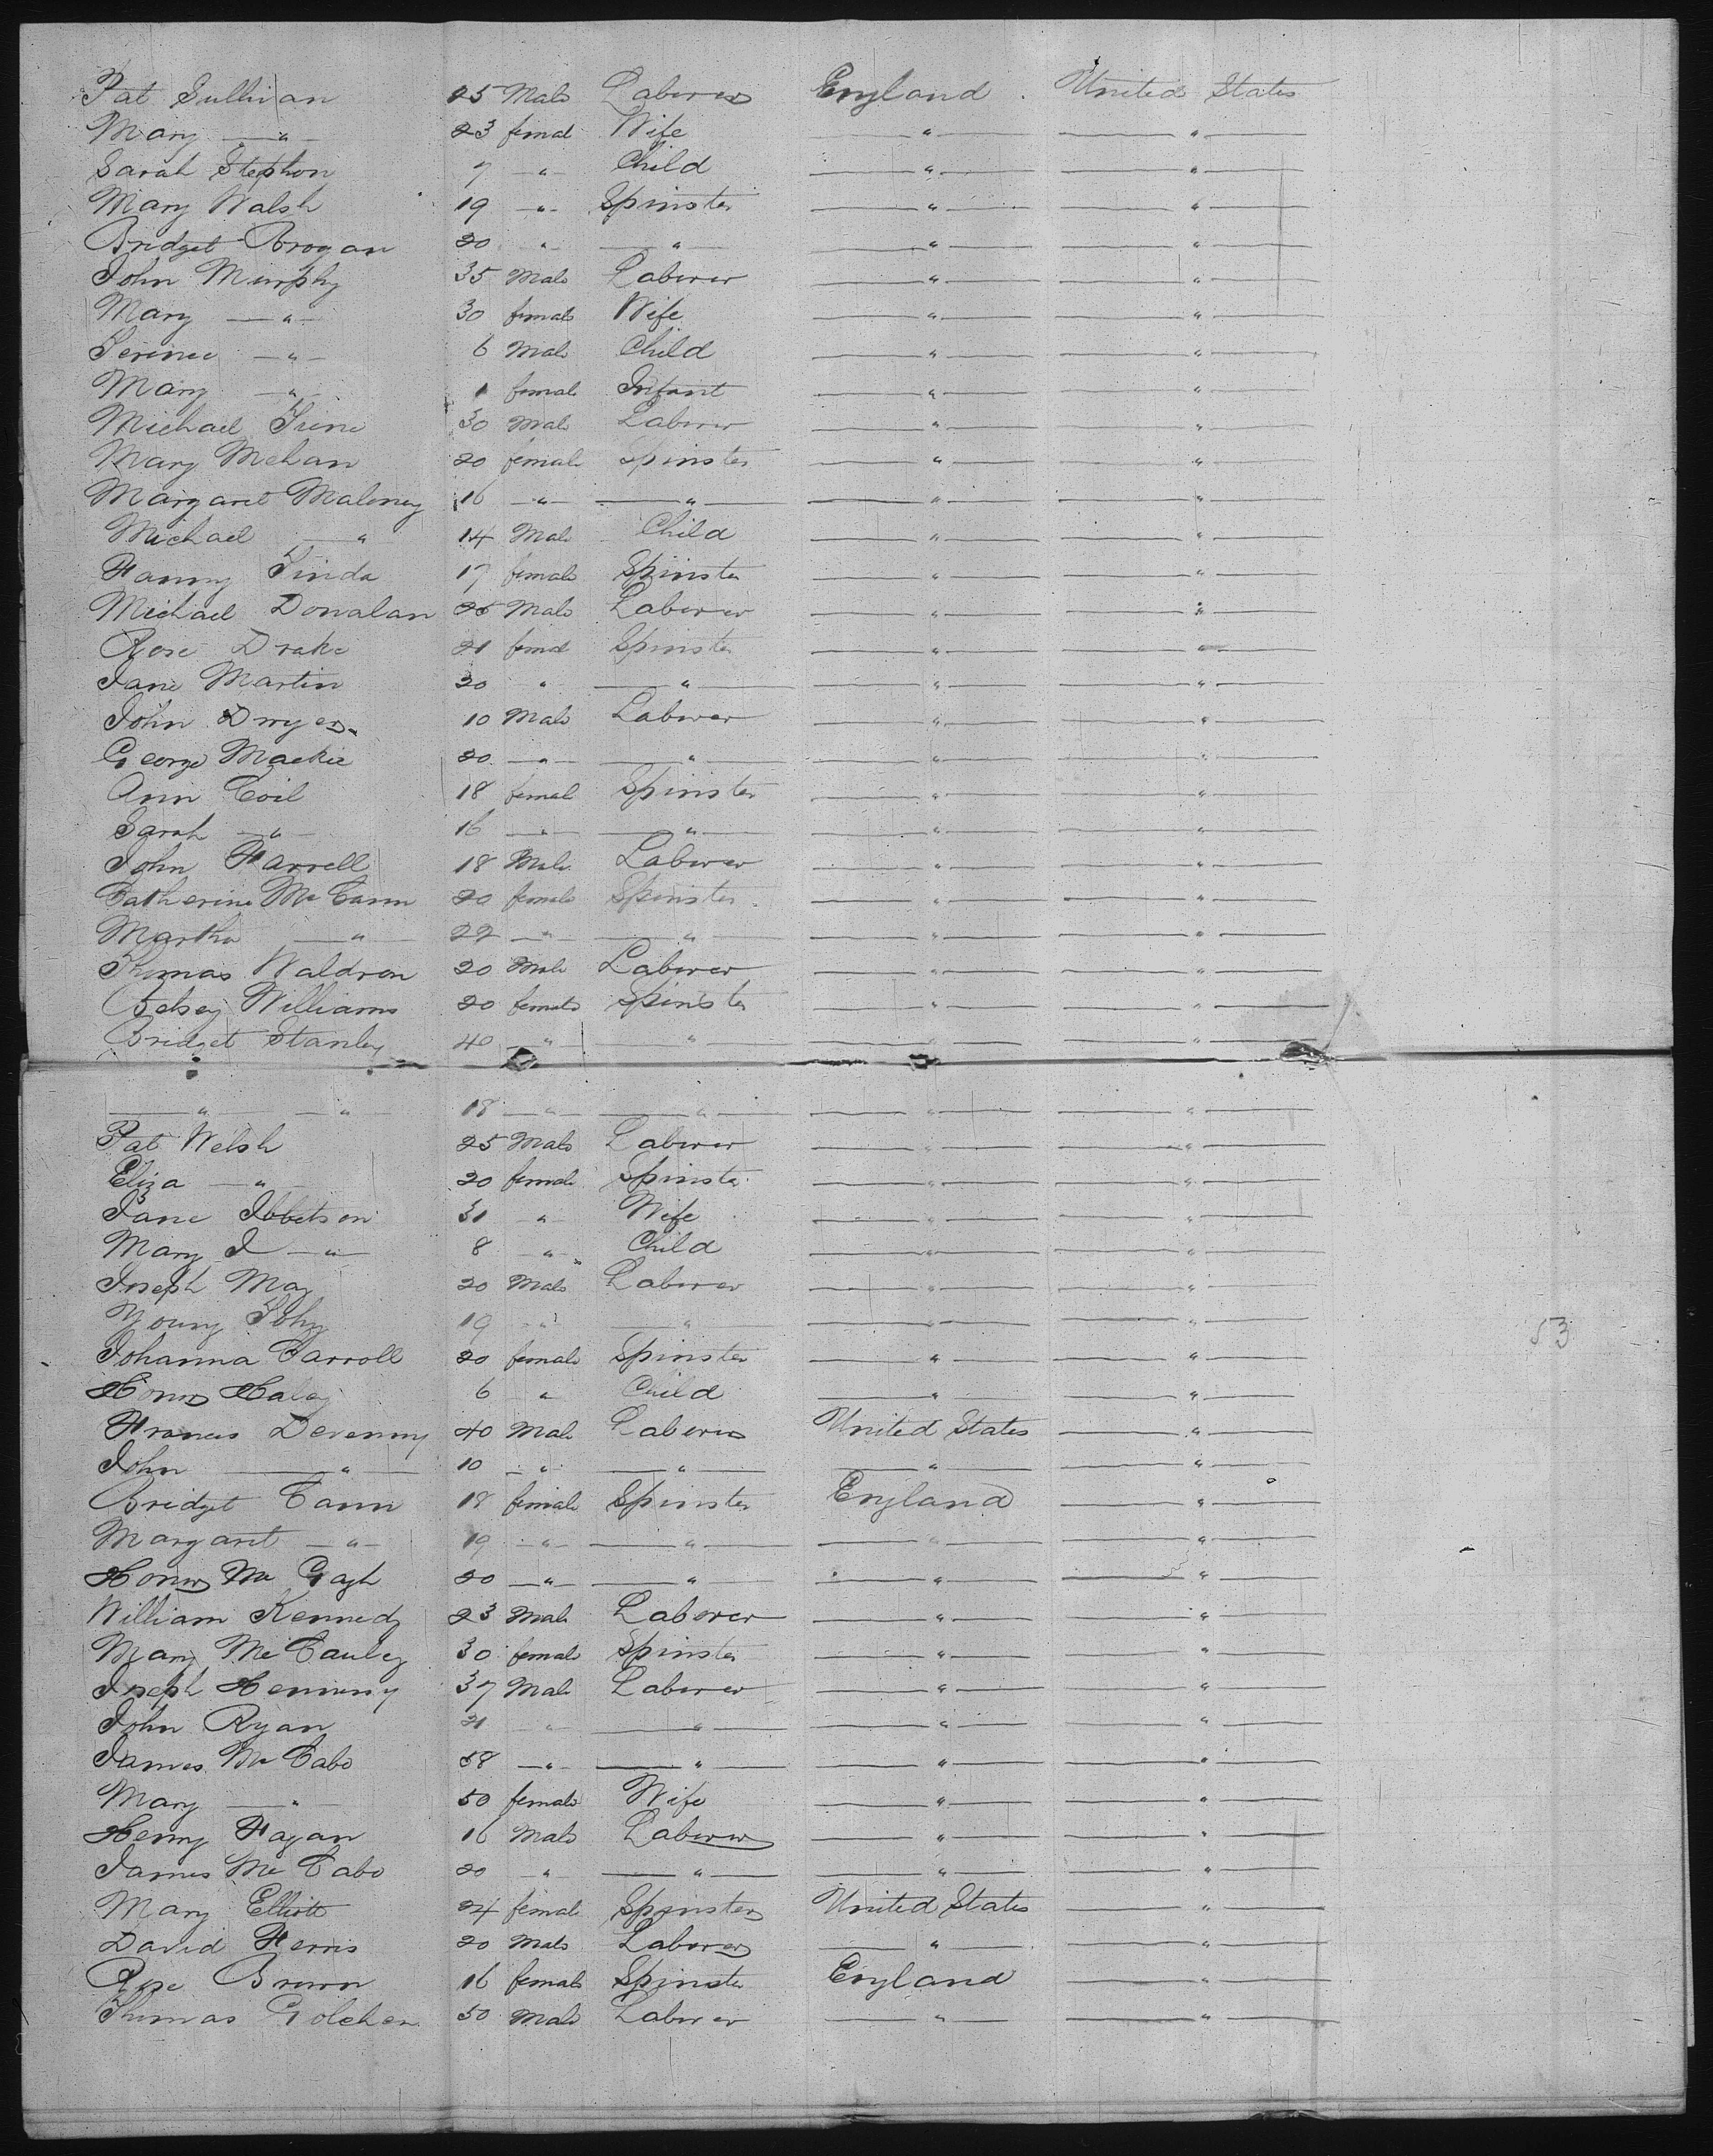 Pat Sullivan 25 Male Laborer England United States
Mary —"— 23 femal Wife —"— —"—
Sarah Stephon 7 —"— Child —"— —"—
Mary Walsh 19 —"— Spinster —"— —"—
Bridget Brogan 20 " —"— —"— —"—
John Murphy 35 Male Laborer —"— —"—
Mary —"— 30 female Wife —"— —"—
Terence —"— 6 Male Child —"— —"—
Mary —"— 1 female Infant —"— —"—
Michael 30 Male Laborer —"— —"—
Mary Mehan 20 female Spinster —"— —"—
Margaret Maloney 16 —"— —"— —"— —"—
Michael —"— 14 Male Child —"— —"—
Fanny 17 female Spinster —"— —"—
Michael Donalan 25 Male Laborer —"— —"—
Rose Drake 21 femal Spinster —"— —"—
Jane Martin 20 " —"— —"— —"—
John Dwyer 10 Male Laborer —"— —"—
George Mackie 20 —"— —"— —"— —"—
Ann Coil 18 femal Spinster —"— —"—
Sarah —"— 16 —"— —"— —"— —"—
John Farrell 18 Male Laborer —"— —"—
Catherine McCann 20 female Spinster —"— —"—
Martha —"— 22 —"— —"— —"— —"—
Thomas Waldron 20 Male Laborer —"— —"—
Betsey Williams 20 female Spinster —"— —"—
Bridget Stanley 40 —"— " —"— —"—
—"— —"— 18 —"— —"— —"— —"—
Pat Welsh 25 Male Laborer —"— —"—
Eliza —"— 20 female Spinster —"— —"—
Jane Ibbetson 31 " Wife —"— —"—
Mary J —"— 8 —"— Child —"— —"—
Joseph May 20 Male Laborer —"— —"—
Young 19 —"— —"— —"— —"—
Johanna Carroll 20 female Spinster —"— —"—
Honor Haley 6 " Child —"— —"—
53
Francis Devenny 40 Male Laborer United States —"—
John —"— 10 —"— —"— —"— —"—
Bridget Cann 18 female Spinster England —"—
Margaret —"— 19 —"— —"— —"— —"—
Honor Mc 20 —"— —"— —"— —"—
William Kennedy 23 Male Laborer —"— —"—
Mary McCauley 30 female Spinster —"— —"—
Joseph Hemmny 37 Male Laborer —"— —"—
John Ryan 21 —"— —"— —"— —"—
James McCabe 58 —"— —"— —"— —"—
Mary —"— 50 female Wife —"— —"—
Henry Fagan 16 Male Laborer —"— —"—
James McCabe 20 " —"— —"— —"—
Mary Elliott 24 female Spinster United States —"—
David Ferris 20 Male Laborer —"— —"—
Rose Brown 16 female Spinster England —"—
Thomas Golcher 50 Male Laborer —"— —"—